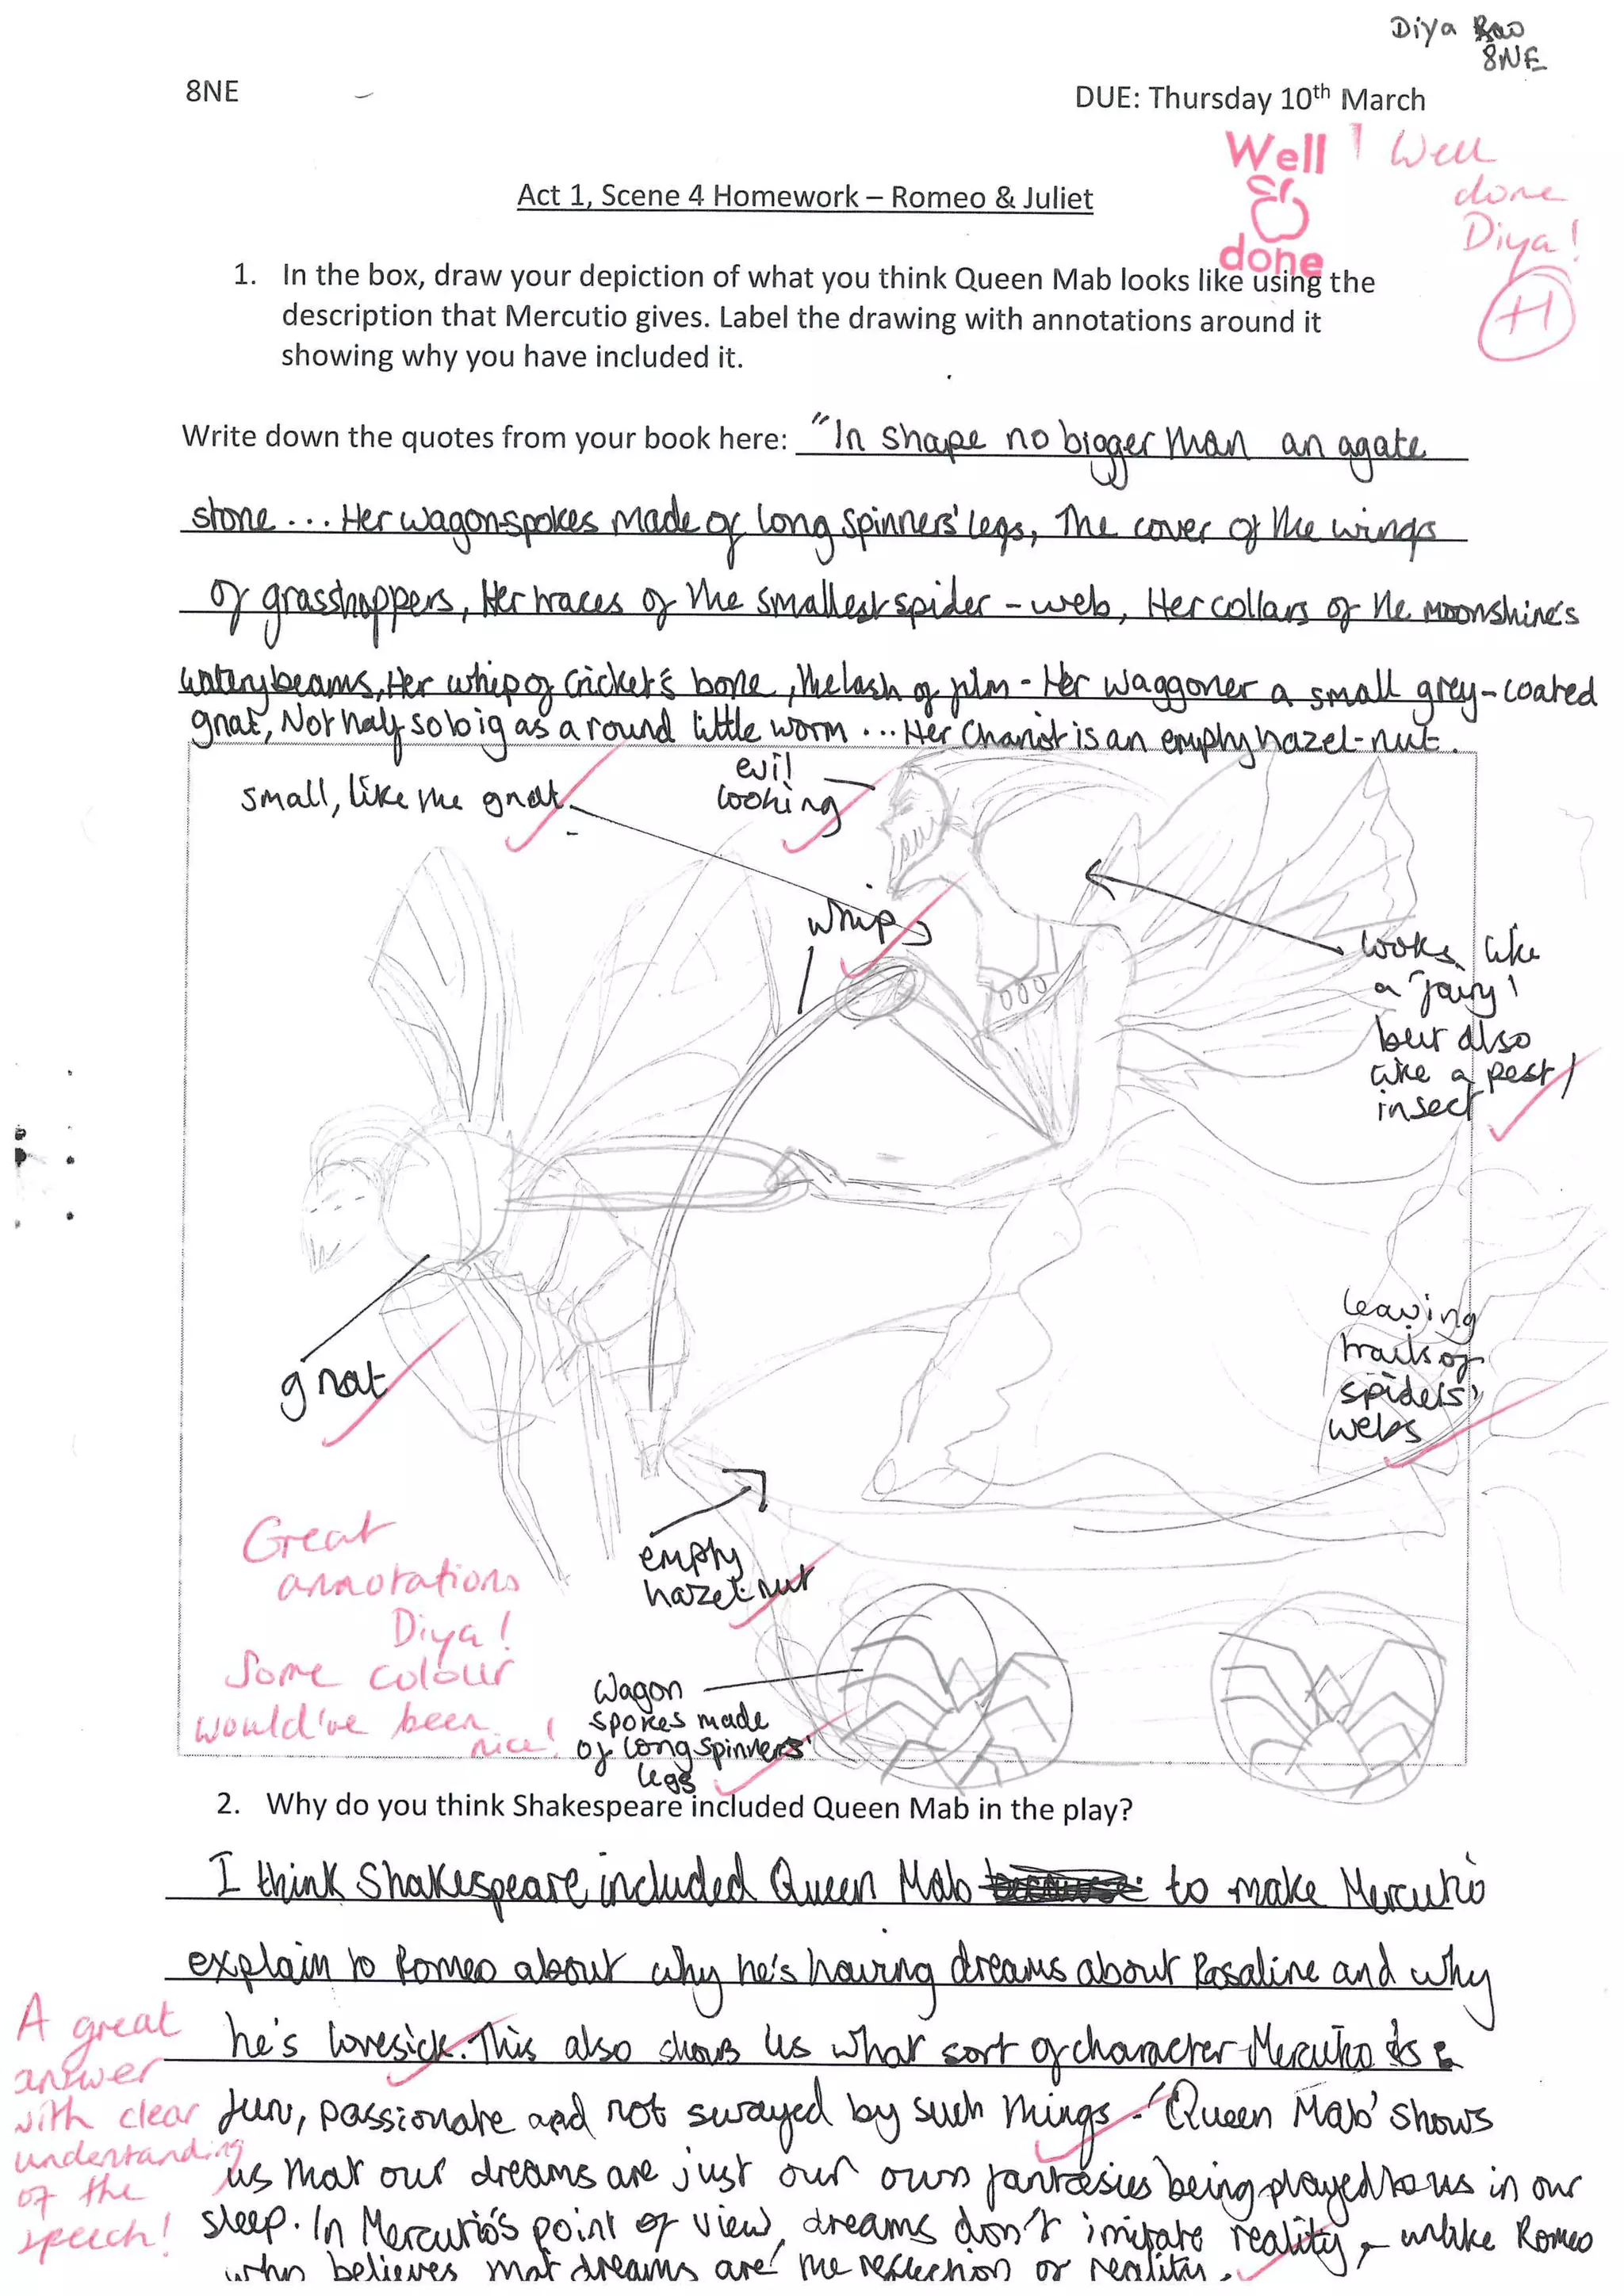 Diya Rao
8NE
8NE
DUE: Thursday 10th March
Well done
! Well
done
Diya!
H
Act 1, Scene 4 Homework – Romeo & Juliet
1. In the box, draw your depiction of what you think Queen Mab looks like using the
description that Mercutio gives. Label the drawing with annotations around it
showing why you have included it.
Write down the quotes from your book here: "In shape no bigger than an agate
stone ... Her wagon-spokes made of long spinners' legs, The cover of the wings
of grasshoppers, Her traces of the smallest spider-web, Her collars of the moonshine's
watery beams, Her whip of cricket's bone, the lash of film - Her waggoner a small grey-coated
gnat, Not half so big as a round little worm ... Her Chariot is an empty hazel-nut.
small, like the gnat
evil
looking
whip
looks like
a 'fairy'
but also
like a pest/
insect
gnat
leaving
trails of
spiders'
webs
empty
hazel-nut
Great
annotations
Diya!
Some colour
would've been
nice!
Wagon
spokes made
of long spinners'
legs
2. Why do you think Shakespeare included Queen Mab in the play?
I think Shakespeare included Queen Mab to make Mercutio
explain to Romeo about why he's having dreams about Rosaline and why
he's lovesick. This also shows us what sort of character Mercutio is
fun, passionate and not swayed by such things. 'Queen Mab' shows
us that our dreams are just our own fantasies being played to us in our
sleep. In Mercutio's point of view, dreams don't imitate reality, unlike Romeo
who believes that dreams are the reflection of reality.
A great
answer
with clear
understanding
of the
speech!